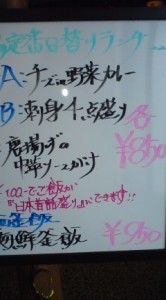 定番日替りランチ
A:チーズin野菜カレー
B:刺身4点盛り
各
唐揚げの
中華ソースがけ
¥850
¥100でご飯が
できます!!
釜飯
朝鮮釜飯 ¥950